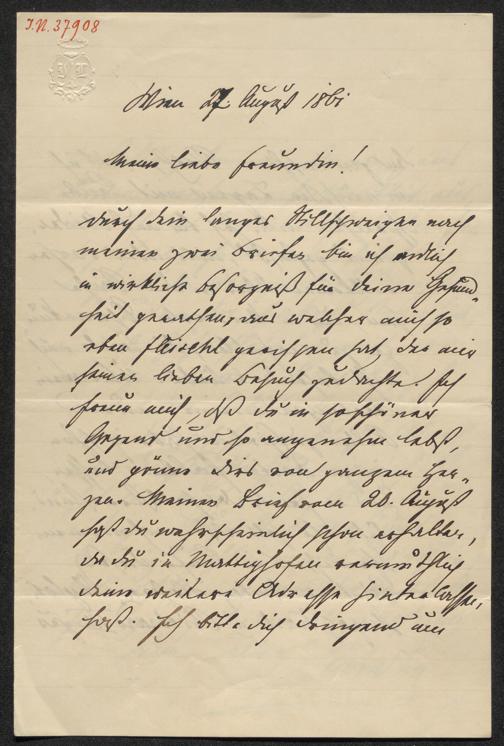 I.N. 37908
Wien 27. August 1861
Meine liebe Freundin!
Durch dein langes Stillschweigen nach
meinen zwei Briefen bin ich endlich
in wirkliche Besorgniß für deine Gesund-
heit gerathen, aus welcher mich so
eben Fleischl gerissen hat, der mir
seinen lieben Besuch gedachte. Ich
freue mich, daß du in so schöner
Gegend und so angenehm lebst,
und gönne dirs von ganzem Her-
zen. Meinen Brief vom 20. August
hast du wahrscheinlich schon erhalten,
da du in Mattighofen vermuthlich
deine weitere Adresse hinterlassen
hast. Ich bitte dich dringend um